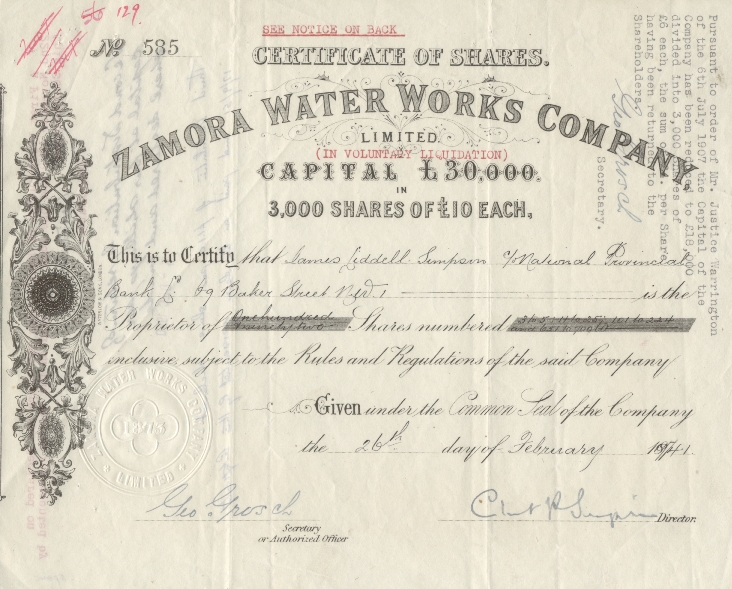 56 129
No. 585
SEE NOTICE ON BACK
CERTIFICATE OF SHARES.
ZAMORA WATER WORKS COMPANY,
LIMITED.
(IN VOLUNTARY LIQUIDATION)
CAPITAL £30,000.
IN
3,000 SHARES OF £10 EACH,
Pursuant to order of Mr. Justice Warrington
of the 6th July 1907 the Capital of the
Company has been reduced to £18,000
divided into 3,000 Shares of
£6 each, the sum of £ . per Share
having been returned to the
Shareholders.
Geo Grosch
Secretary.
This is to Certify that James Liddell Simpson c/o National Provincial
Bank Ld 69 Baker Street N.W.1 is the
Proprietor of One hundred Shares numbered
twenty two
inclusive, subject to the Rules and Regulations of the said Company
Given under the Common Seal of the Company
the 26th day of February 1941.
ZAMORA WATER WORKS COMPANY
LIMITED
Geo Grosch
Secretary
or Authorized Officer
Director.